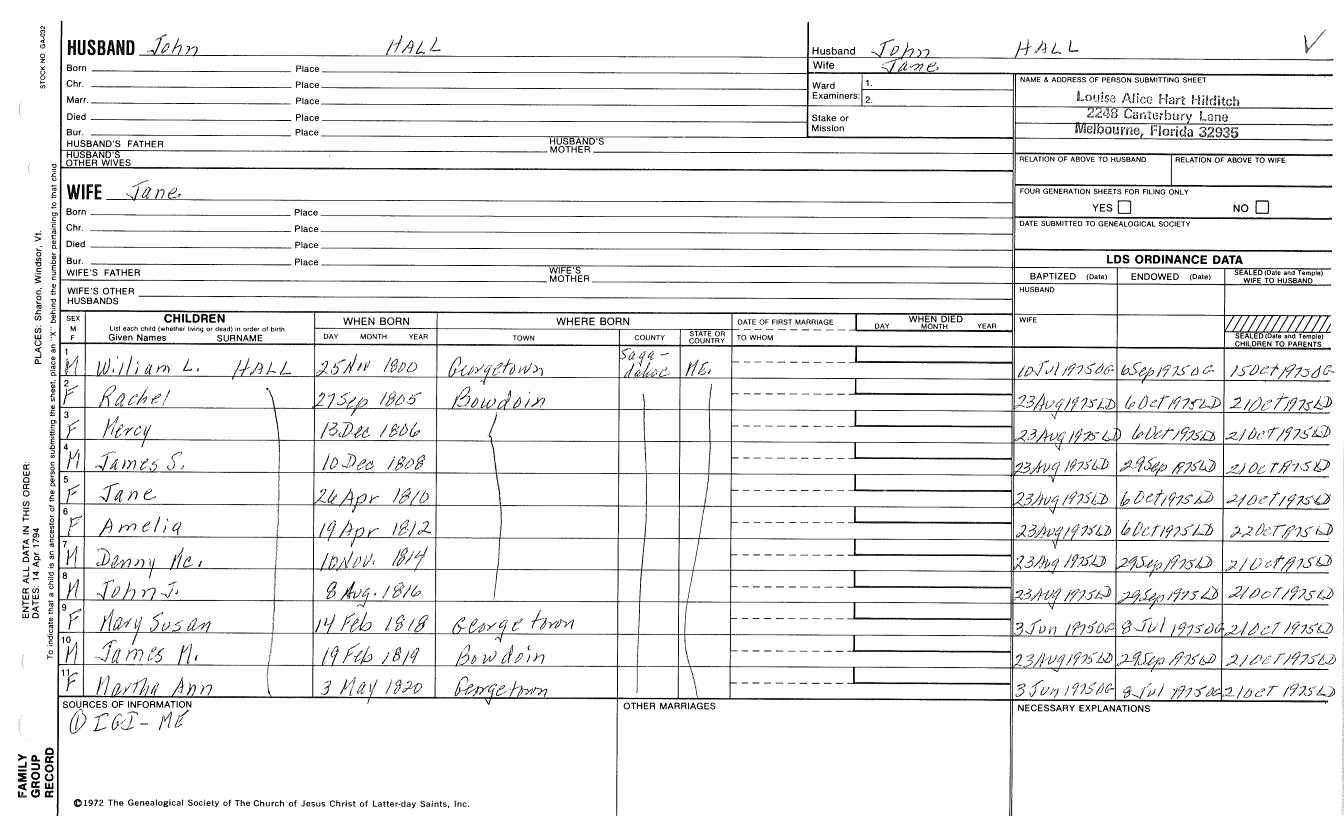 STOCK NO GA-032
HUSBAND John HALL
Born Place
Chr. Place
Marr. Place
Died Place
Bur. Place
HUSBAND'S FATHER HUSBAND'S MOTHER
HUSBAND'S OTHER WIVES
WIFE Jane
Born Place
Chr. Place
Died Place
Bur. Place
WIFE'S FATHER WIFE'S MOTHER
WIFE'S OTHER HUSBANDS
Husband John HALL ✓
Wife Jane
Ward Examiners: 1. 2.
Stake or Mission
NAME & ADDRESS OF PERSON SUBMITTING SHEET
Louise Alice Hart Hilditch
2248 Canterbury Lane
Melbourne, Florida 32935
RELATION OF ABOVE TO HUSBAND RELATION OF ABOVE TO WIFE
FOUR GENERATION SHEETS FOR FILING ONLY
YES NO
DATE SUBMITTED TO GENEALOGICAL SOCIETY
LDS ORDINANCE DATA
BAPTIZED (Date) ENDOWED (Date) SEALED (Date and Temple) WIFE TO HUSBAND
HUSBAND
WIFE
SEALED (Date and Temple) CHILDREN TO PARENTS
SEX M F CHILDREN List each child (whether living or dead) in order of birth Given Names SURNAME
WHEN BORN DAY MONTH YEAR
WHERE BORN TOWN COUNTY STATE OR COUNTRY
DATE OF FIRST MARRIAGE TO WHOM
WHEN DIED DAY MONTH YEAR
1 M William L. HALL 25 Nov 1800 Georgetown Sagadahoc ME. 10 Jul 1975 OG 6 Sep 1975 OG 15 Oct 1975 OG
2 F Rachel 27 Sep 1805 Bowdoin 23 Aug 1975 LD 6 Oct 1975 LD 21 Oct 1975 LD
3 F Mercy 13 Dec 1806 23 Aug 1975 LD 6 Oct 1975 LD 21 Oct 1975 LD
4 M James S. 10 Dec 1808 23 Aug 1975 LD 29 Sep 1975 LD 21 Oct 1975 LD
5 F Jane 26 Apr 1810 23 Aug 1975 LD 6 Oct 1975 LD 21 Oct 1975 LD
6 F Amelia 19 Apr 1812 23 Aug 1975 LD 6 Oct 1975 LD 22 Oct 1975 LD
7 M Denny Mc. 10 Nov. 1814 23 Aug 1975 LD 29 Sep 1975 LD 21 Oct 1975 LD
8 M John J. 8 Aug. 1816 23 Aug 1975 LD 29 Sep 1975 LD 21 Oct 1975 LD
9 F Mary Susan 14 Feb 1818 Georgetown 3 Jun 1975 OG 8 Jul 1975 OG 21 Oct 1975 LD
10 M James M. 19 Feb 1819 Bowdoin 23 Aug 1975 LD 29 Sep 1975 LD 21 Oct 1975 LD
11 F Martha Ann 3 May 1820 Georgetown 3 Jun 1975 OG 8 Jul 1975 OG 21 Oct 1975 LD
SOURCES OF INFORMATION
① IGI - ME
OTHER MARRIAGES
NECESSARY EXPLANATIONS
©1972 The Genealogical Society of The Church of Jesus Christ of Latter-day Saints, Inc.
FAMILY GROUP RECORD
ENTER ALL DATA IN THIS ORDER:
DATES: 14 Apr 1794 PLACES: Sharon, Windsor, Vt.
To indicate that a child is an ancestor of the person submitting the sheet, place an "X" behind the number pertaining to that child.